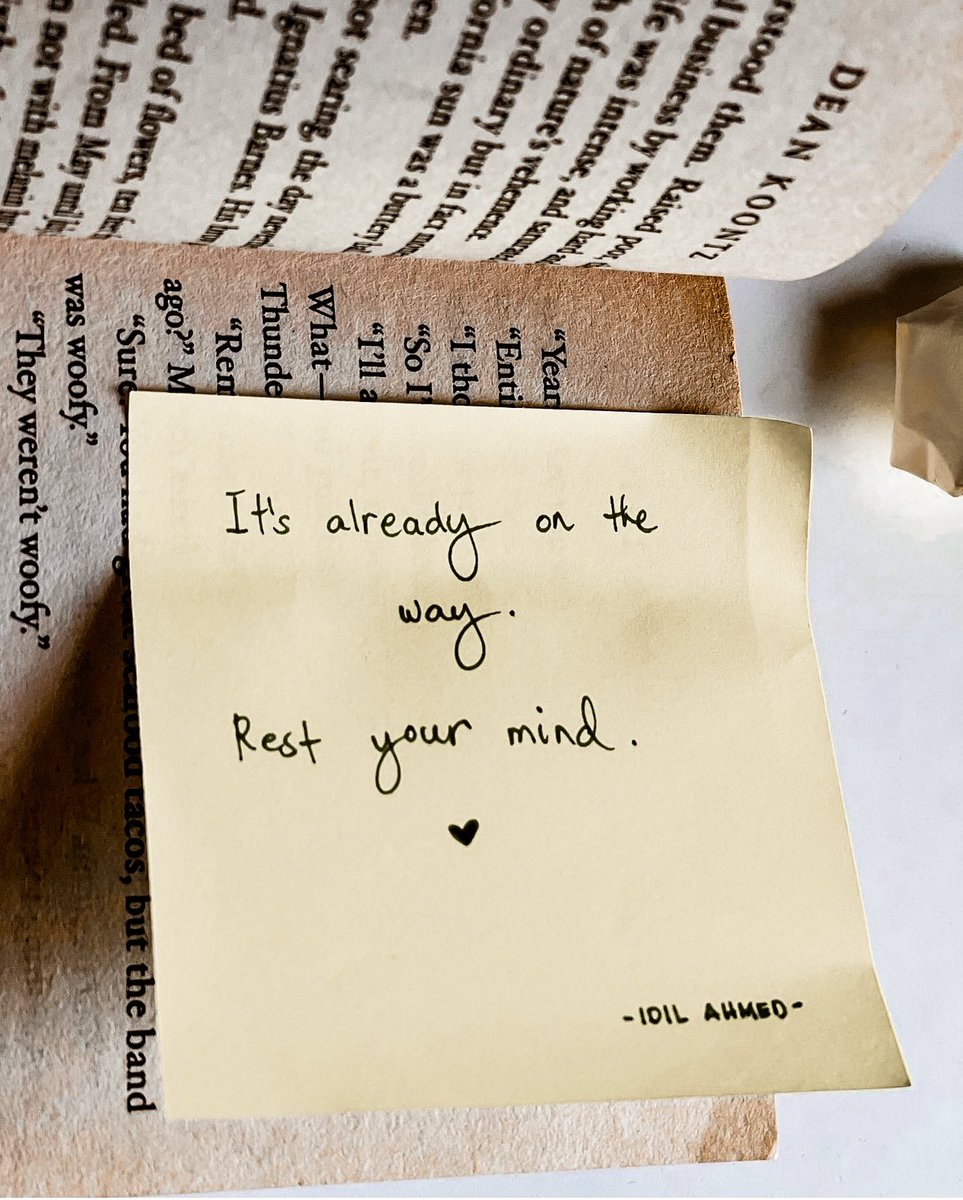 It's already on the
way.
Rest your mind.
♥
-IDIL AHMED-
DEAN KOONTZ
rstood them. Raised poor,
l business by working hard
ife was intense, and
h of nature's vehemence.
y ordinary but in fact
ornia sun was a buttery
en.
not searing the day
Ignatius Barnes. His
d.
bed of flowers, ten
led. From May until
n nor with
"Year
"Enti
"I tho
"So I'
"I'll a
What—
Thunde
"Rem
ago?" M
"Sure
tacos, but the band
was woofy."
"They weren't woofy."